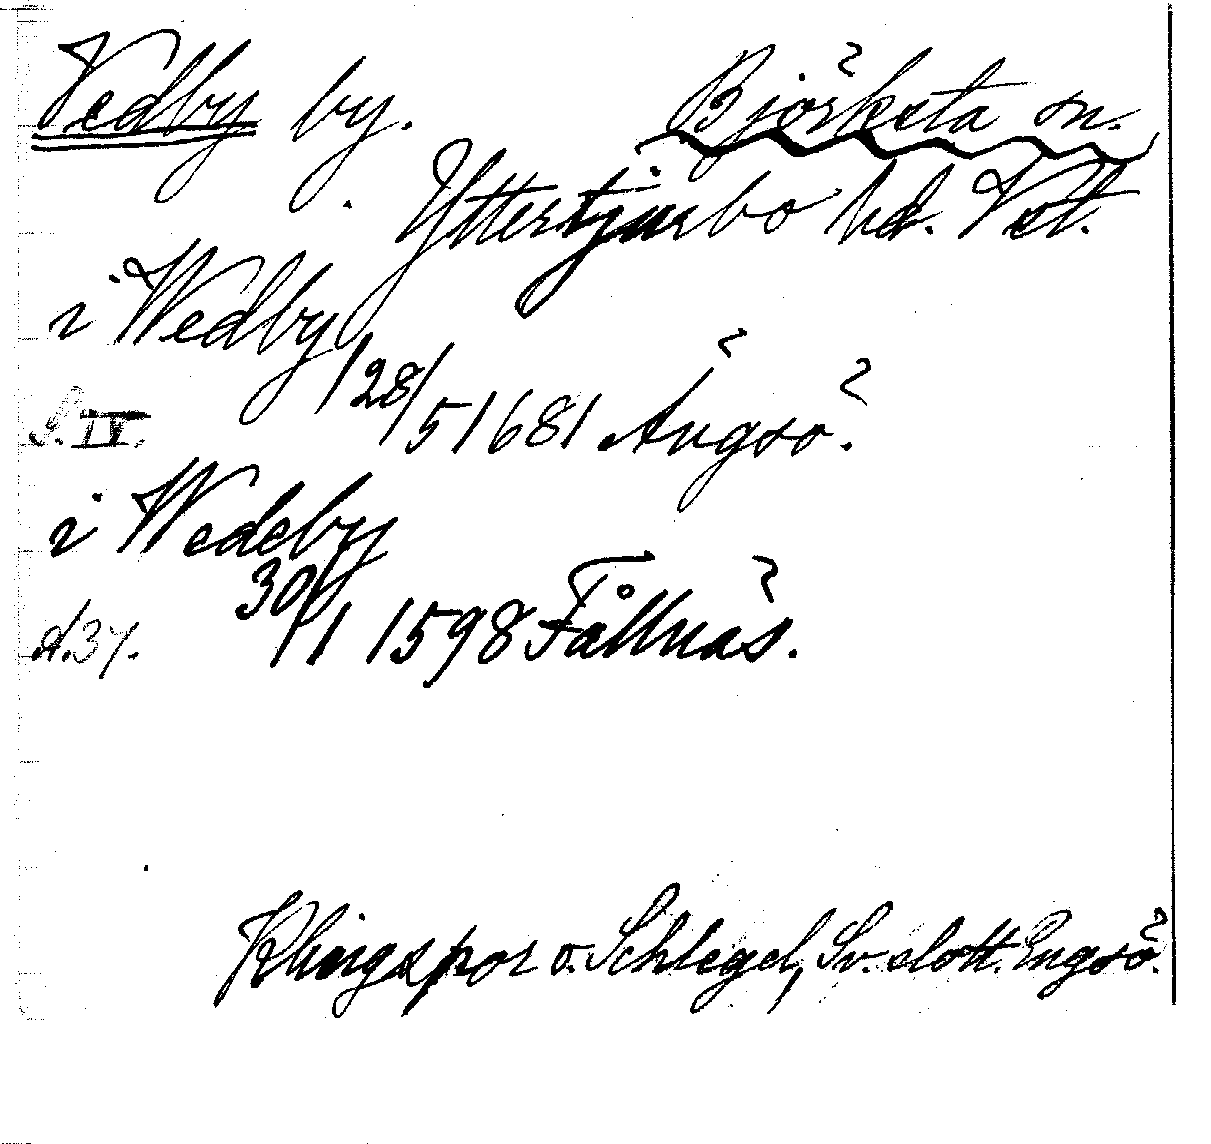 Vedby by. Björksta sn.
Yttertjurbo hd. Vstl.
i Wedby
28/5 1681 Ängsö.
S. IV.
i Wedeby
30/1 1598 Fållnäs.
d. 37.
Klingspor o. Schlegel, Sv. slott. Engsö.